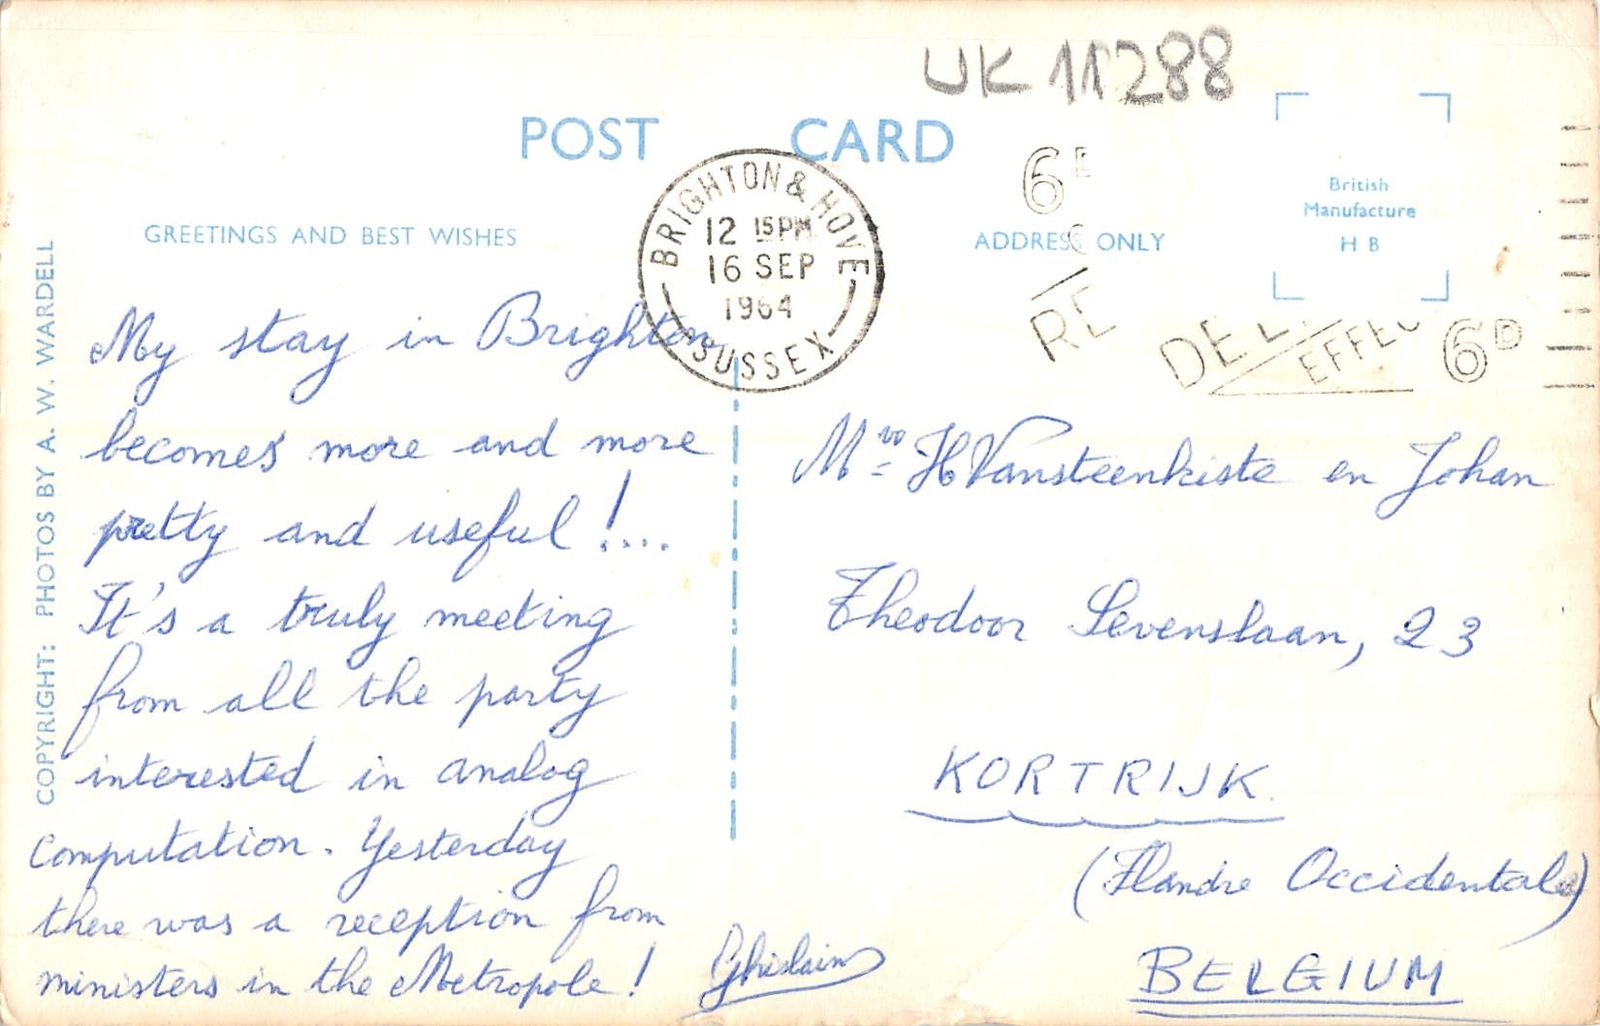 UK 11288
POST CARD
BRIGHTON & HOVE
12 15 PM
16 SEP
1964
SUSSEX
6D
RE
DEL
EFFEC
6D
British
Manufacture
H B
GREETINGS AND BEST WISHES
ADDRESS ONLY
COPYRIGHT: PHOTOS BY A. W. WARDELL
My stay in Brighton
becomes more and more
pretty and useful !....
It's a truly meeting
from all the party
interested in analog
computation. Yesterday
there was a reception from
ministers in the Metropole !
Ghislain
Mvo H Vansteenkiste en Johan
Theodoor Sevenslaan, 23
KORTRIJK
(Flandre Occidentale)
BELGIUM